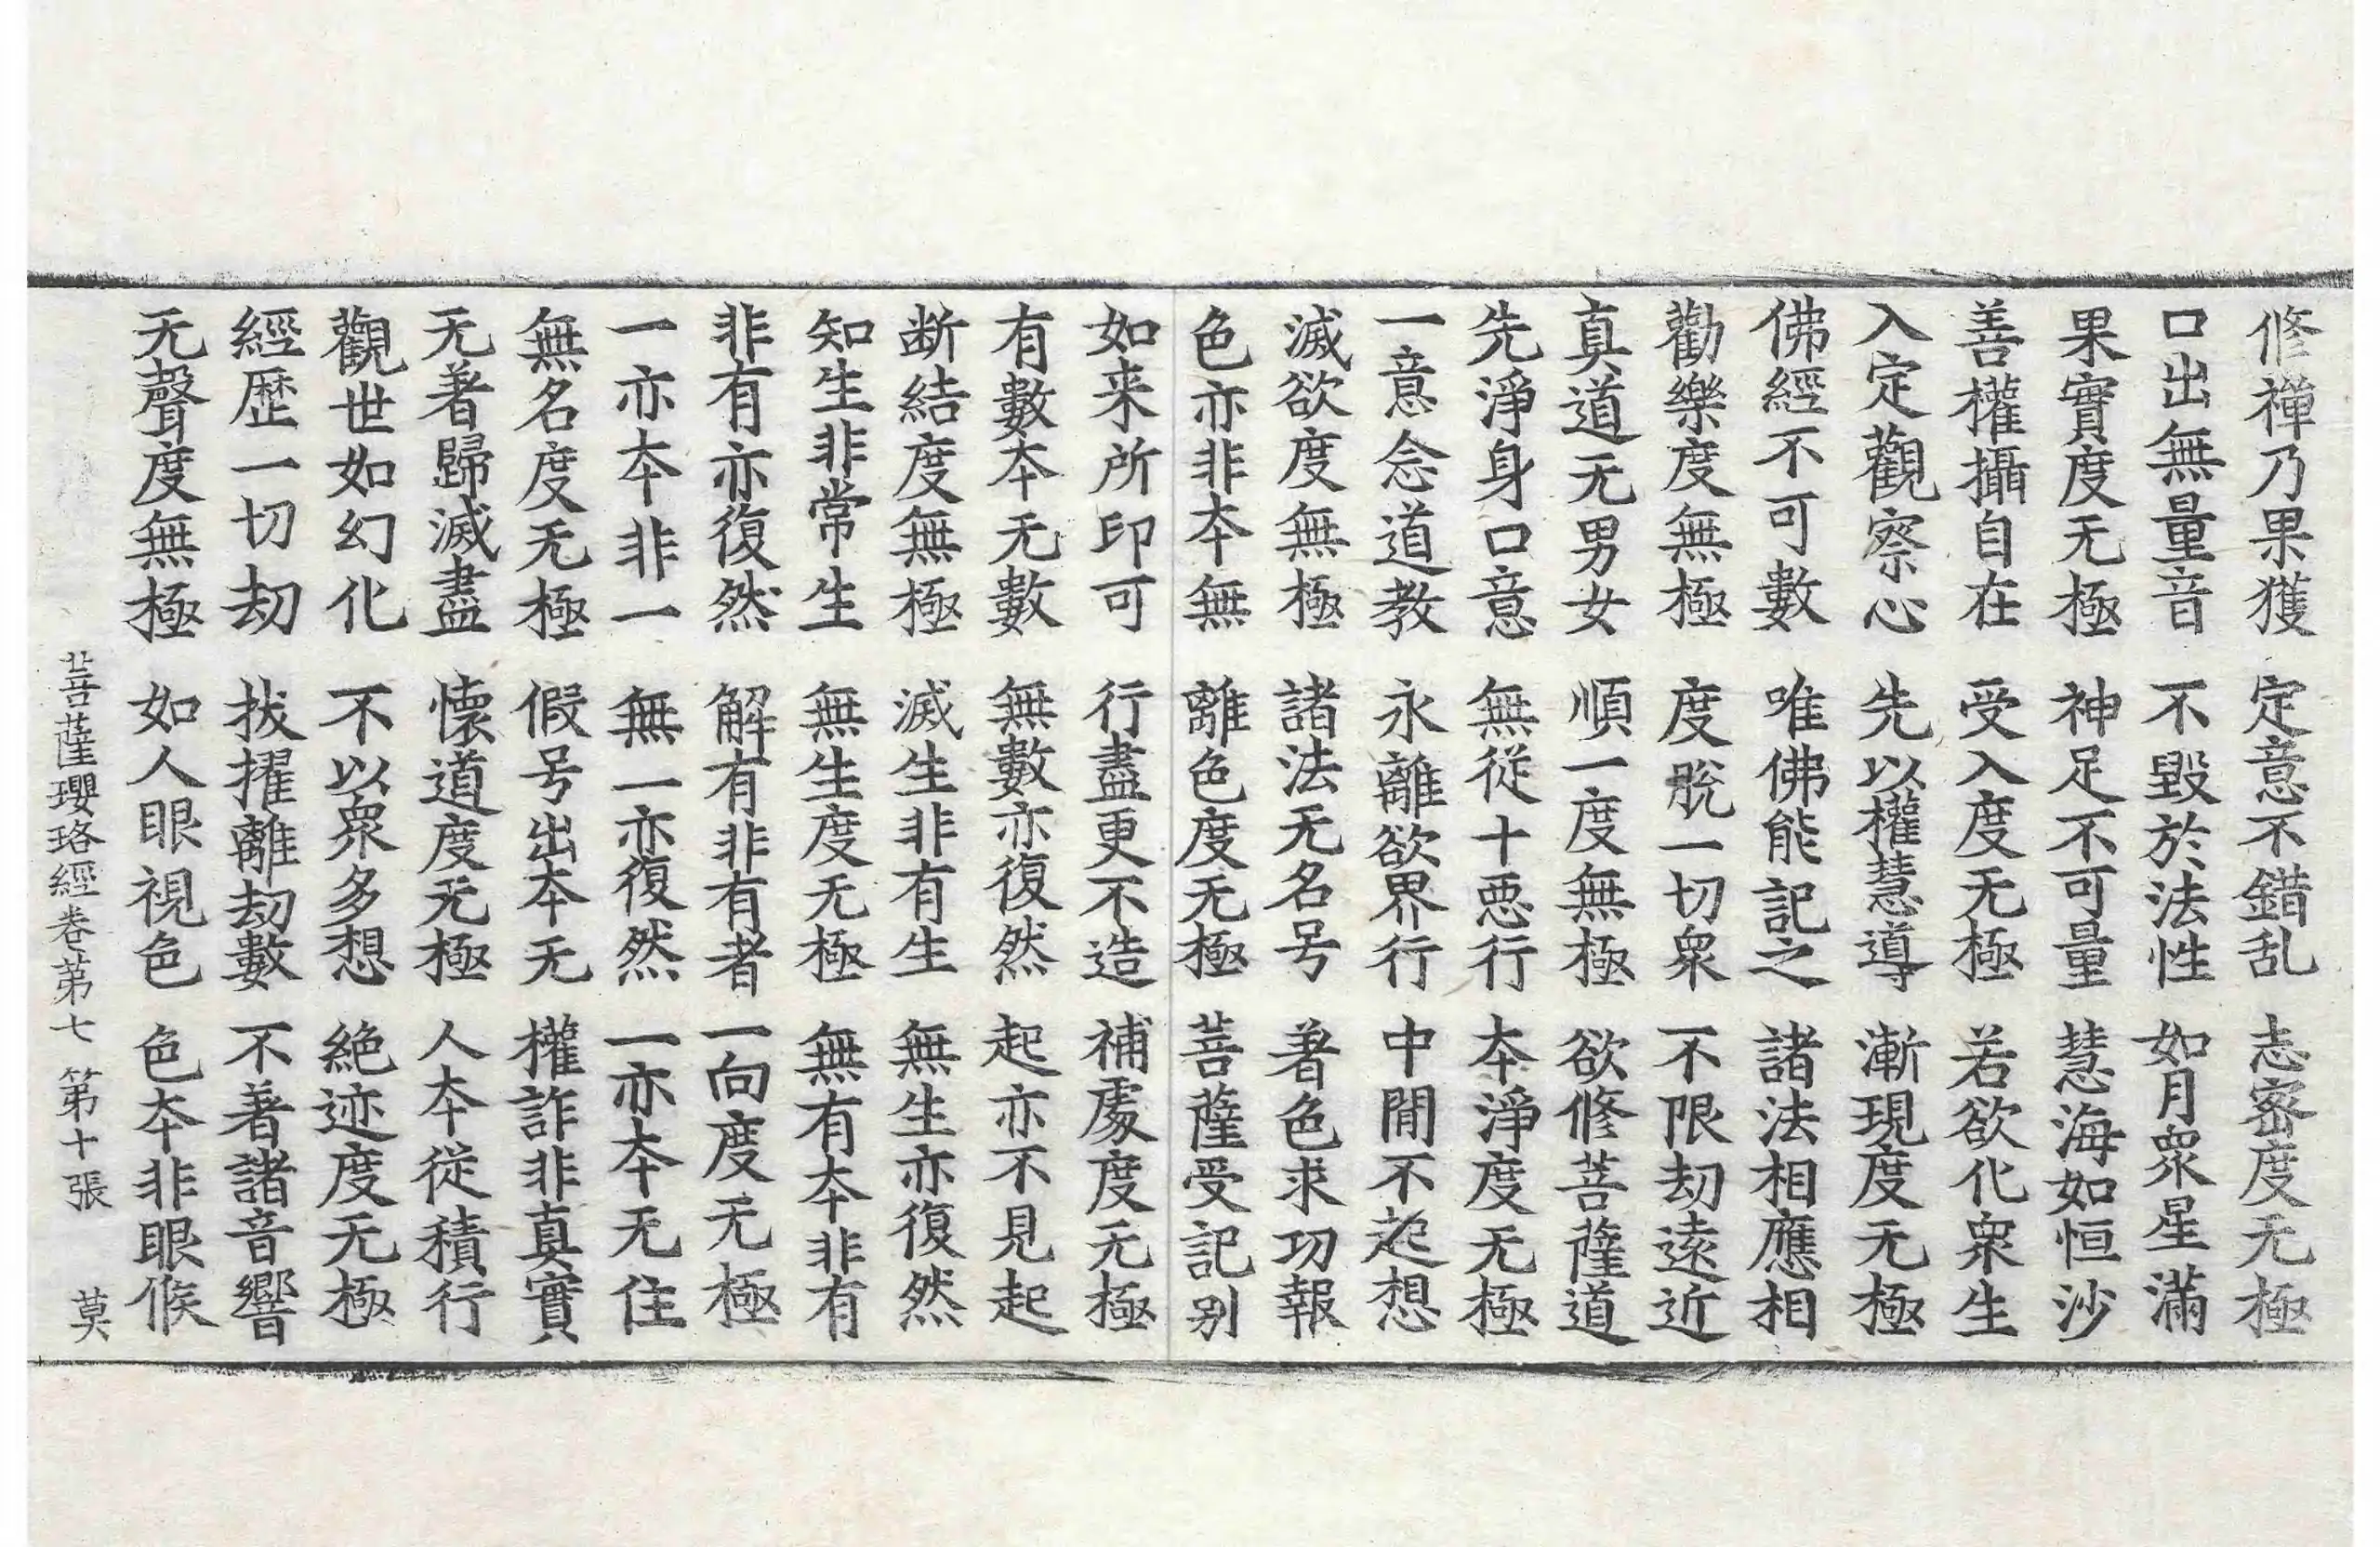 修禅乃果獲　定意不錯乱　志密度无極
口出無量音　不毀於法性　如月衆星滿
果實度无極　神足不可量　慧海如恒沙
善權攝自在　受入度无極　若欲化衆生
入定觀察心　先以權慧導　漸現度无極
佛經不可數　唯佛能記之　諸法相應相
勸樂度無極　度脫一切衆　不限劫遠近
真道无男女　順一度無極　欲修菩薩道
先淨身口意　無從十惡行　夲淨度无極
一意念道教　永離欲界行　中間不起想
滅欲度無極　諸法无名号　著色求功報
色亦非夲無　離色度无極　菩薩受記别
如来所印可　行盡更不造　補處度无極
有數夲无數　無數亦復然　起亦不見起
断結度無極　滅生非有生　無生亦復然
知生非常生　無生度无極　無有夲非有
非有亦復然　解有非有者　一向度无極
一亦夲非一　無一亦復然　一亦夲无住
無名度无極　假号出夲无　權詐非真實
无著歸滅盡　懷道度无極　人夲從積行
觀世如幻化　不以衆多想　絶迹度无極
經歷一切劫　拔擢離劫數　不著諸音響
无聲度無極　如人眼視色　色夲非眼候
菩薩瓔珞經卷第七　第十張　莫